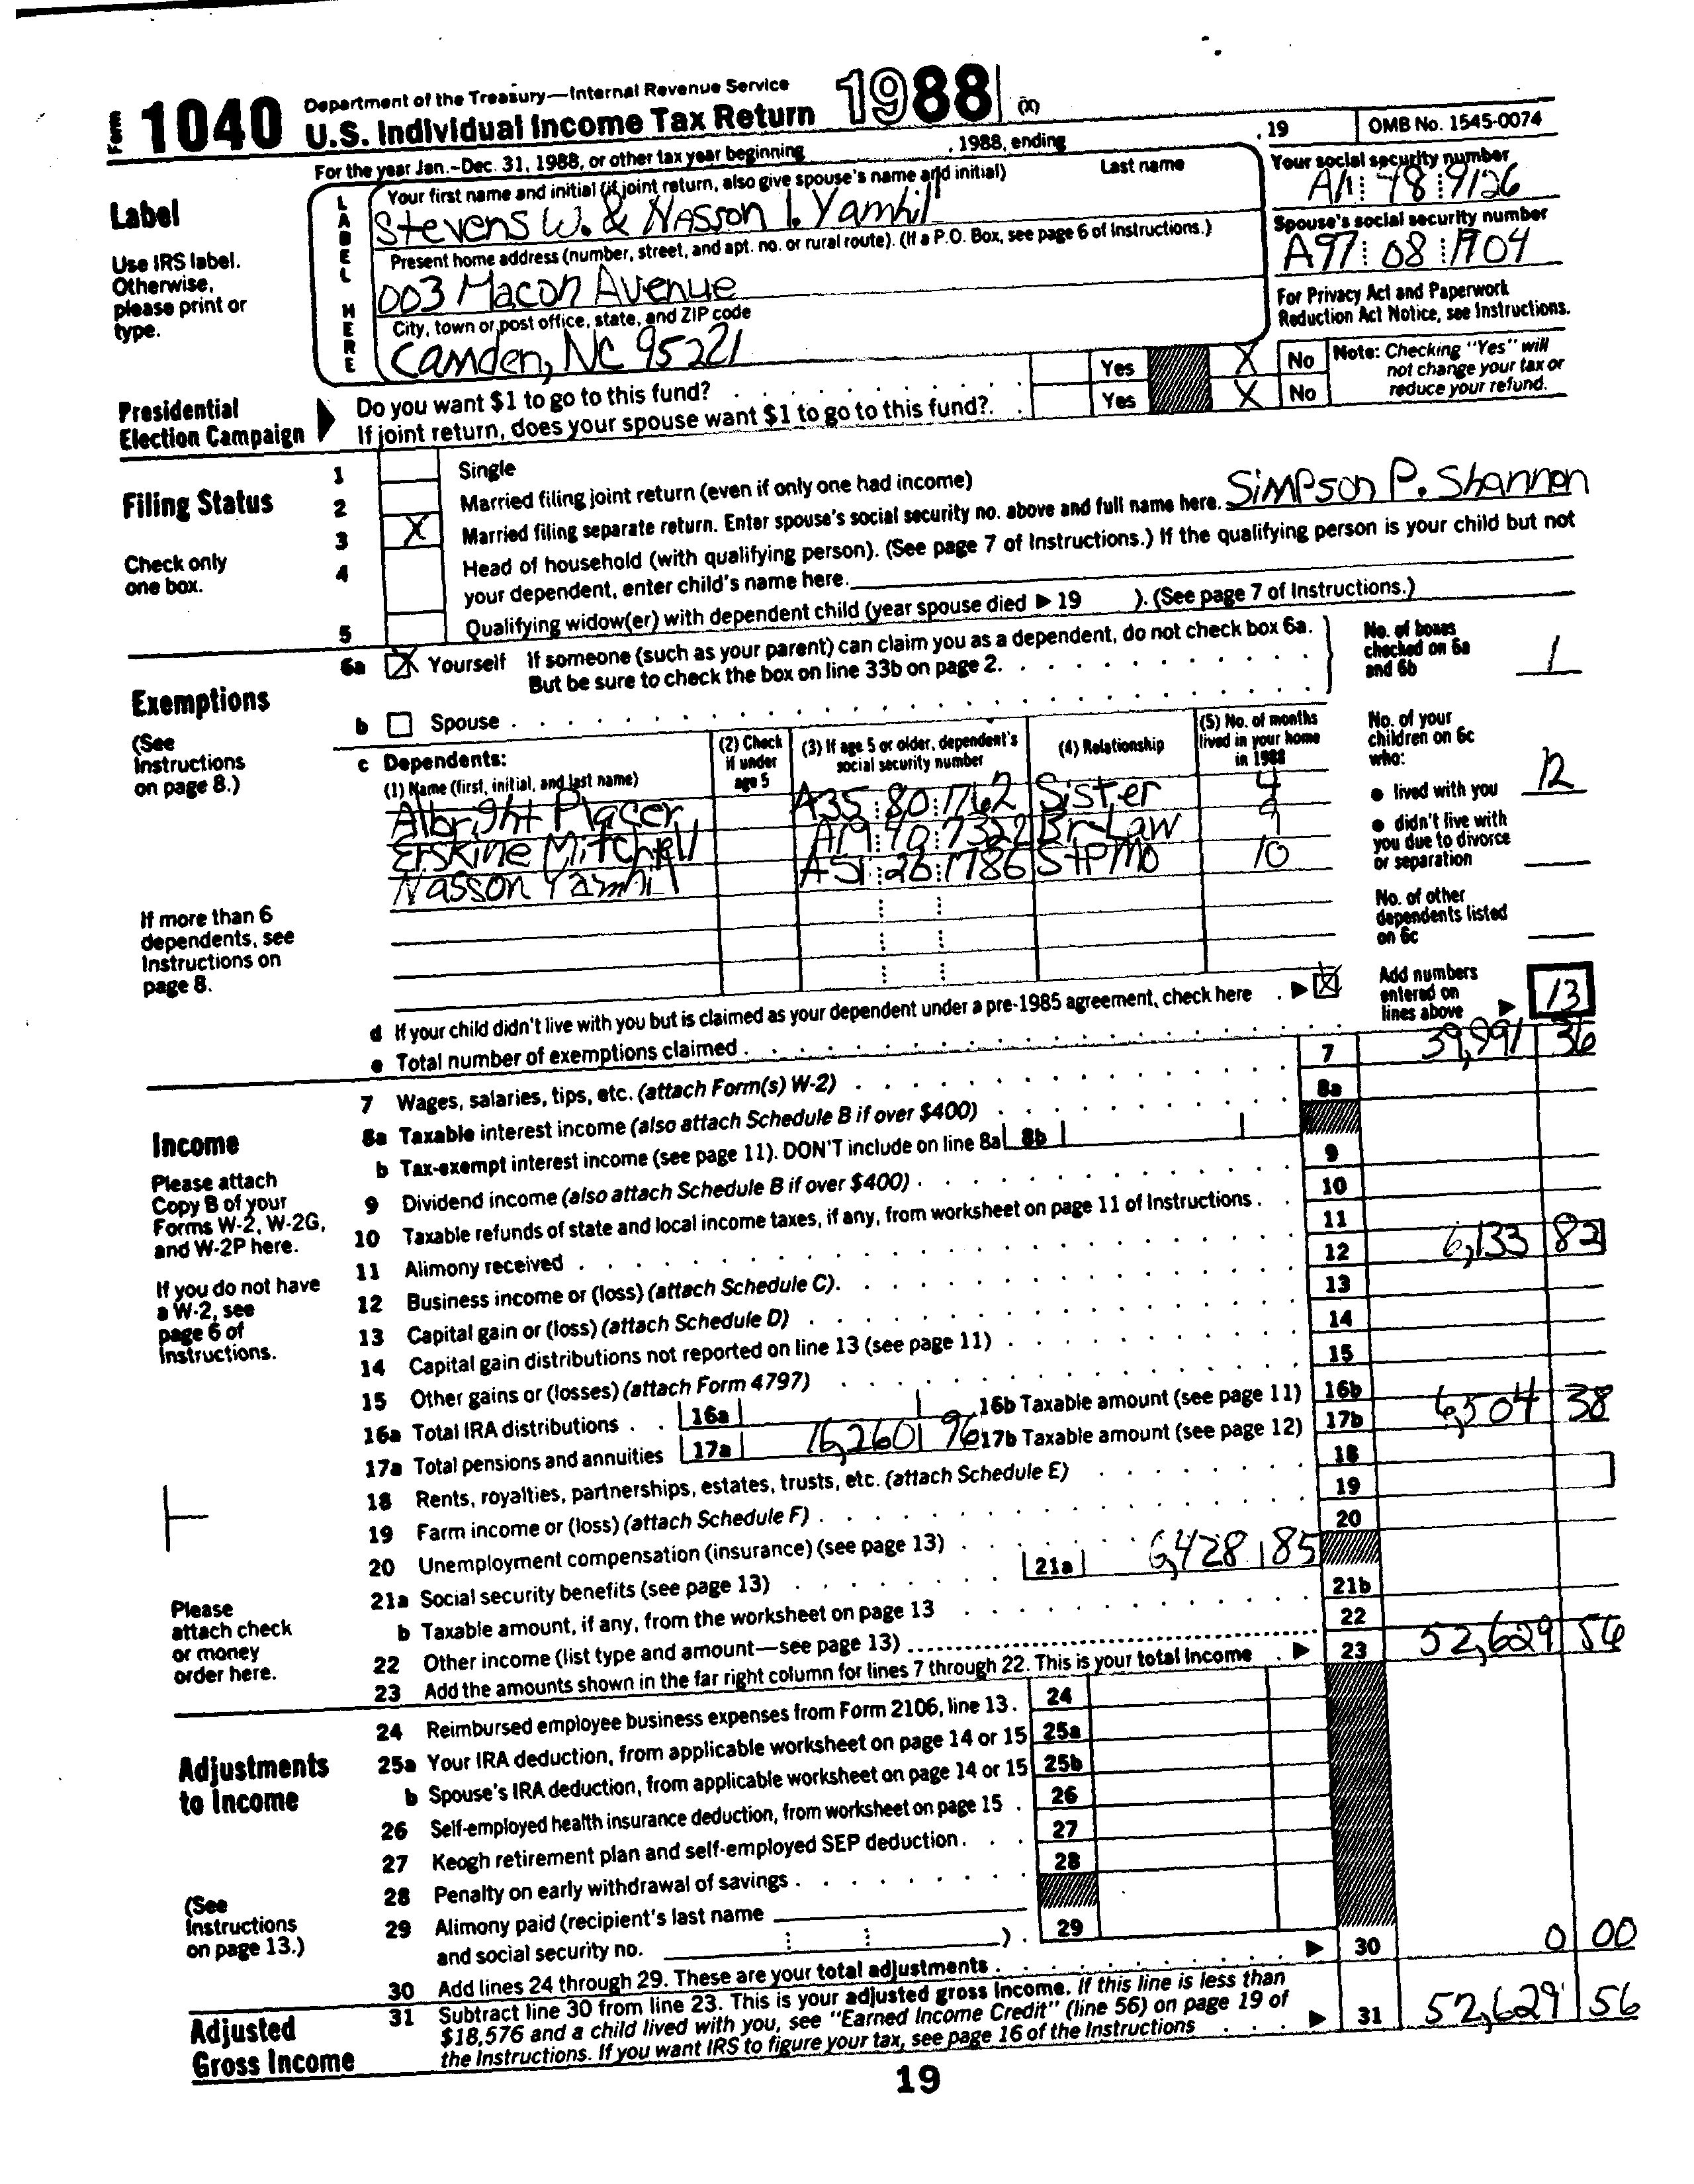 Form 1040 Department of the Treasury—Internal Revenue Service
U.S. Individual Income Tax Return 1988 (X)
For the year Jan.–Dec. 31, 1988, or other tax year beginning , 1988, ending , 19 OMB No. 1545-0074
Label
Use IRS label. Otherwise, please print or type.
LABEL HERE
Your first name and initial (if joint return, also give spouse's name and initial) Last name
Stevens W. & Nasson I. Yamhil
Your social security number
Present home address (number, street, and apt. no. or rural route). (If a P.O. Box, see page 6 of Instructions.)
003 Macon Avenue
Spouse's social security number
A97 08 1904
City, town or post office, state, and ZIP code
Camden, NC 95221
For Privacy Act and Paperwork Reduction Act Notice, see Instructions.
Presidential Election Campaign
Do you want $1 to go to this fund? . . . . . . . Yes X No
If joint return, does your spouse want $1 to go to this fund?. . Yes X No
Note: Checking "Yes" will not change your tax or reduce your refund.
Filing Status
Check only one box.
1 Single
2 Married filing joint return (even if only one had income)
3 X Married filing separate return. Enter spouse's social security no. above and full name here. Simpson P. Shannon
4 Head of household (with qualifying person). (See page 7 of Instructions.) If the qualifying person is your child but not
your dependent, enter child's name here.
5 Qualifying widow(er) with dependent child (year spouse died ▶ 19 ). (See page 7 of Instructions.)
Exemptions
(See Instructions on page 8.)
6a X Yourself If someone (such as your parent) can claim you as a dependent, do not check box 6a.
But be sure to check the box on line 33b on page 2.
No. of boxes checked on 6a and 6b 1
b Spouse
c Dependents:
(1) Name (first, initial, and last name)
(2) Check if under age 5
(3) If age 5 or older, dependent's social security number
(4) Relationship
(5) No. of months lived in your home in 1988
Albright Placer A35 80 1762 Sister 4
Erskine Mitchell A19 40 7322 Br-Law 9
Nasson Yamhil A51 26 1786 StPMo 10
No. of your children on 6c who:
● lived with you 12
● didn't live with you due to divorce or separation
No. of other dependents listed on 6c
If more than 6 dependents, see Instructions on page 8.
d If your child didn't live with you but is claimed as your dependent under a pre-1985 agreement, check here . ▶ X
e Total number of exemptions claimed
Add numbers entered on lines above ▶ 13
Income
Please attach Copy B of your Forms W-2, W-2G, and W-2P here.
If you do not have a W-2, see page 6 of Instructions.
Please attach check or money order here.
7 Wages, salaries, tips, etc. (attach Form(s) W-2) 7 39,991 36
8a Taxable interest income (also attach Schedule B if over $400) 8a
b Tax-exempt interest income (see page 11). DON'T include on line 8a 8b
9 Dividend income (also attach Schedule B if over $400) 9
10 Taxable refunds of state and local income taxes, if any, from worksheet on page 11 of Instructions 10
11 Alimony received 11
12 Business income or (loss) (attach Schedule C). 12 6,133 82
13 Capital gain or (loss) (attach Schedule D) 13
14 Capital gain distributions not reported on line 13 (see page 11) 14
15 Other gains or (losses) (attach Form 4797) 15
16a Total IRA distributions 16a 16b Taxable amount (see page 11) 16b
17a Total pensions and annuities 17a 16,260 96 17b Taxable amount (see page 12) 17b 6,504 38
18 Rents, royalties, partnerships, estates, trusts, etc. (attach Schedule E) 18
19 Farm income or (loss) (attach Schedule F) 19
20 Unemployment compensation (insurance) (see page 13) 20
21a Social security benefits (see page 13) 21a 6,428 85
b Taxable amount, if any, from the worksheet on page 13 21b
22 Other income (list type and amount—see page 13) 22
23 Add the amounts shown in the far right column for lines 7 through 22. This is your total income ▶ 23 52,629 56
Adjustments to Income
(See Instructions on page 13.)
24 Reimbursed employee business expenses from Form 2106, line 13. 24
25a Your IRA deduction, from applicable worksheet on page 14 or 15 25a
b Spouse's IRA deduction, from applicable worksheet on page 14 or 15 25b
26 Self-employed health insurance deduction, from worksheet on page 15 . 26
27 Keogh retirement plan and self-employed SEP deduction. 27
28 Penalty on early withdrawal of savings 28
29 Alimony paid (recipient's last name
and social security no. ). 29
30 Add lines 24 through 29. These are your total adjustments ▶ 30 0 00
Adjusted Gross Income
31 Subtract line 30 from line 23. This is your adjusted gross income. If this line is less than
$18,576 and a child lived with you, see "Earned Income Credit" (line 56) on page 19 of
the Instructions. If you want IRS to figure your tax, see page 16 of the Instructions ▶ 31 52,629 56
19